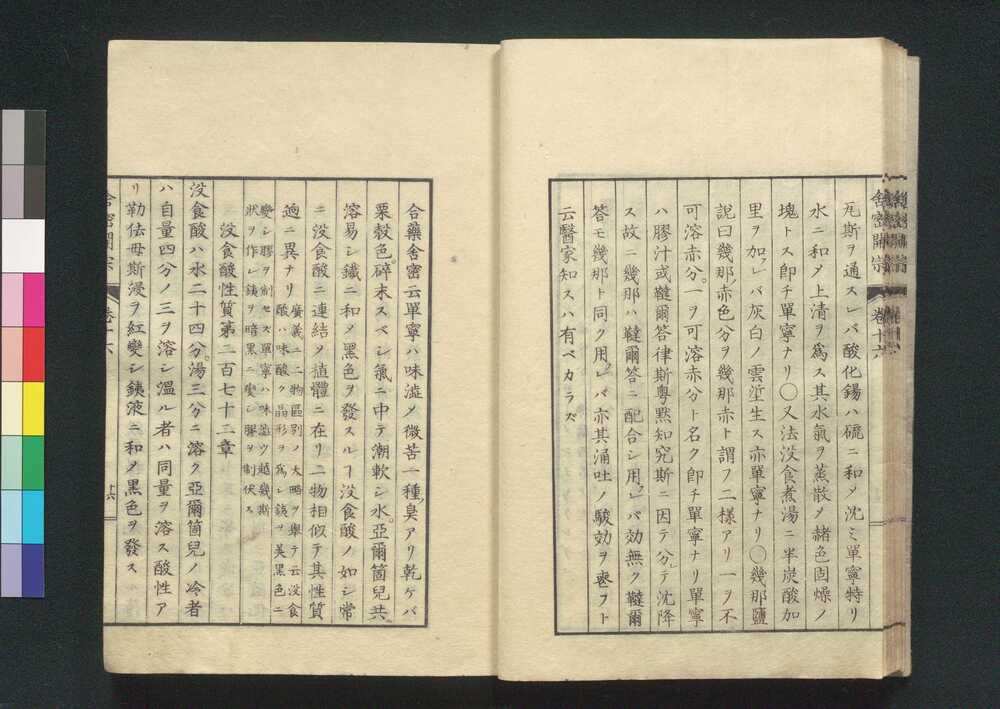 舎密開宗
巻十六
瓦斯ヲ通スレバ酸化鍚ハ硫ニ和メ沈ミ單寧特リ
水ニ和メ上清ヲ爲ス其水氣ヲ蒸散メ赭色固燥ノ
塊トス卽チ單寧ナリ〇又法没食煮湯ニ半炭酸加
里ヲ加フレバ灰白ノ雲埿生ス亦單寧ナリ〇幾那鹽
説曰幾那ノ赤色分ヲ幾那赤ト謂フ二様アリ一ヲ不
可溶赤分一ヲ可溶赤分ト名ク卽チ單寧ナリ單寧
ハ膠汁或韃爾答律斯粤黙知究斯ニ因テ分テ沈降
ス故ニ幾那ハ韃爾答ニ配合シ用レバ効無ク韃爾
答モ幾那ト同ク用レバ亦其涌吐ノ駿効ヲ喪フト
云醫家知スハ有ベカラズ
合藥舎密云單寧ハ味澁メ微苦一種臭アリ乾ケバ
栗殻色碎末スベシ氣ニ中テ潮軟シ水亞爾箇兒共
溶易シ鐵ニ和メ黑色ヲ發スルヿ没食酸ノ如シ常
ニ没食酸ニ連結メ植體ニ在リ二物相似テ其性質
逈ニ異ナリ
廣義ニ二物區別ノ大略ヲ擧テ云没食
酸ハ味酸ク晶形ヲ爲シ鐵ヲ美黑色ニ
變シ膠ヲ制セズ單寧ハ味澁ク越幾斯
狀ヲ作シ鐵ヲ暗黑ニ變シ膠ヲ制伏ス
没食酸性質第二百七十三章
没食酸ハ水二十四分湯三分ニ溶ク亞爾箇兒ノ冷者
ハ自量四分ノ三ヲ溶シ溫ル者ハ同量ヲ溶ス酸性ア
リ勒佉母斯浸ヲ紅變シ鐵液ニ和メ黑色ヲ發ス
舎密開宗
巻十六
十六